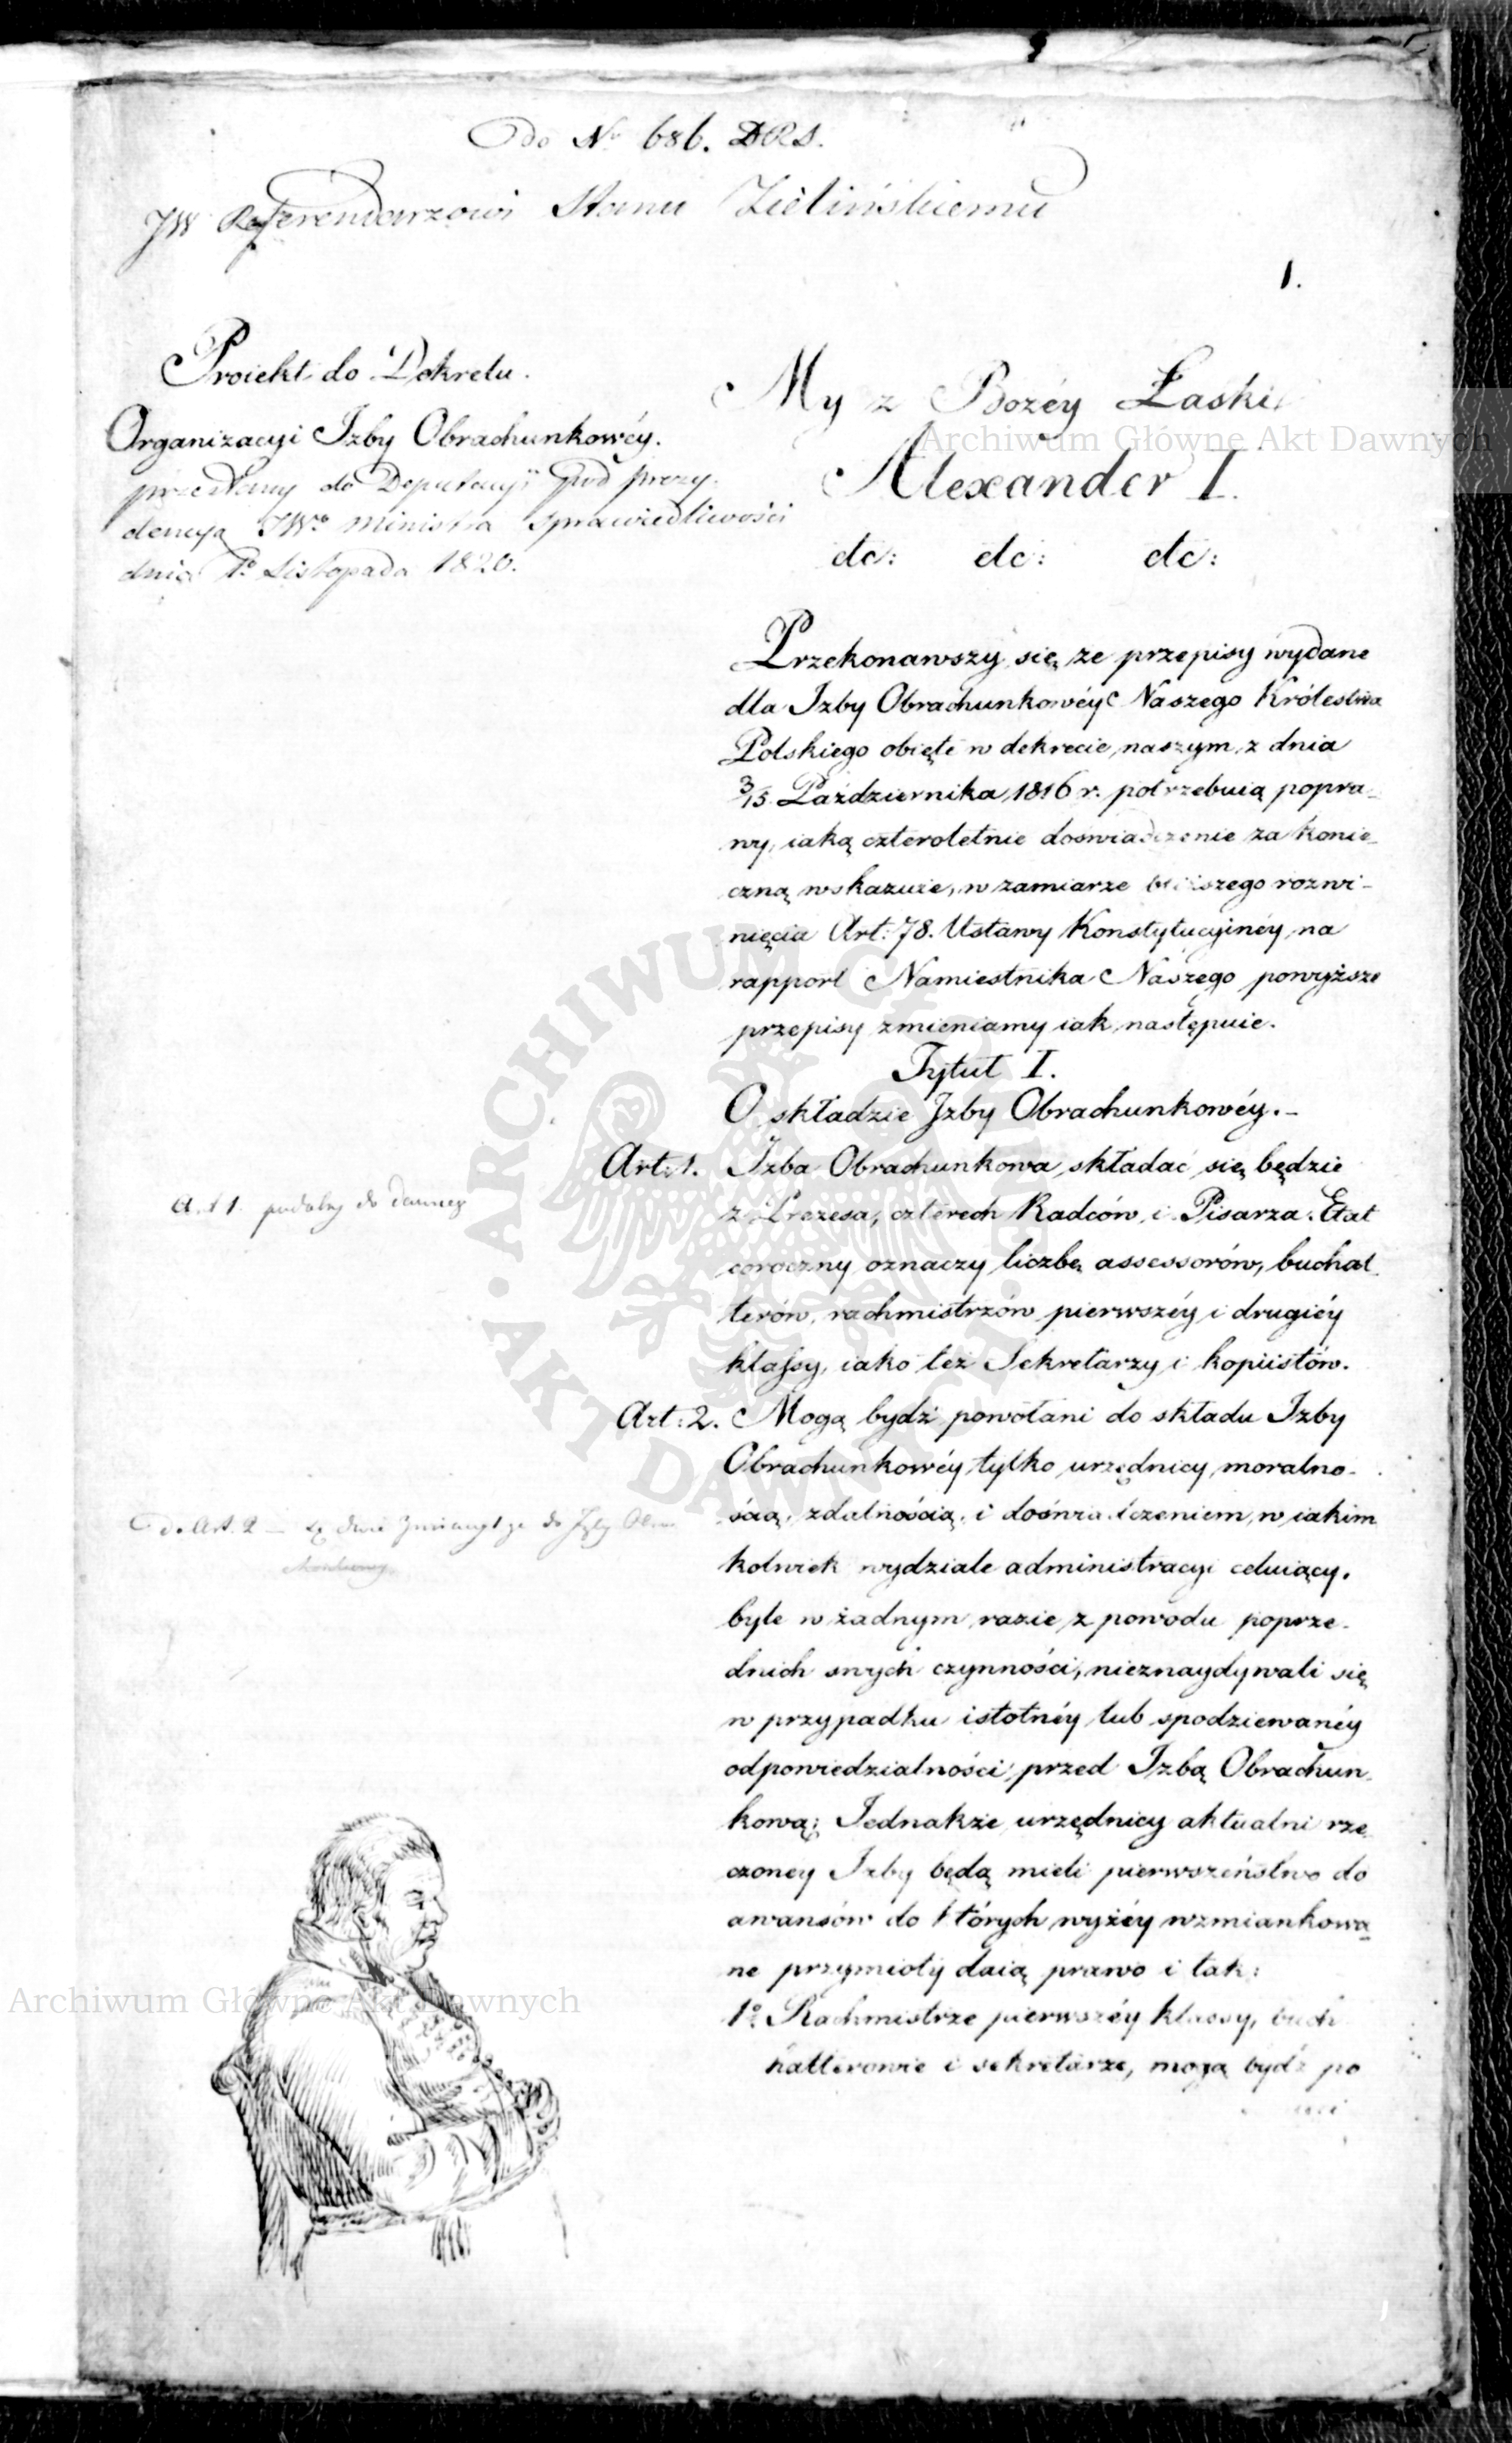 do No 686. DRS.
JW Referendarzowi Stanu Zielińskiemu
1.
Proiekt do Dekretu.
Organizacyi Izby Obrachunkowéy.
przesłany do Deputacyi pod prezy-
dencyą JWo Ministra Sprawiedliwości
dnia 1o Listopada 1820.
My z Bożéy Łaski
Alexander I.
etc: etc: etc:
Przekonawszy się że przepisy wydane
dla Izby Obrachunkowéy Naszego Królestwa
Polskiego obięte w dekrecie naszym z dnia
3/15 Października 1816 r. potrzebuią popra-
wy, iaką czteroletnie doświadczenie za konie-
czną wskazuie, w zamiarze rozwi-
nięcia Art: 78. Ustawy Konstytucyinéy na
rapport Namiestnika Naszego powyższe
przepisy zmieniamy iak następuie.
Tytuł I.
O składzie Izby Obrachunkowéy.-
Art: 1. Izba Obrachunkowa składać się będzie
z Prezesa, czterech Radców i Pisarza. Etat
coroczny oznaczy liczbę assessorów, buchal-
terów, rachmistrzów pierwszéy i drugiéy
klassy, iako też Sekretarzy i kopiistów.
Art: 2. Mogą bydź powołani do składu Izby
Obrachunkowéy tylko urzędnicy moralno-
ścią, zdatnością, i doświadczeniem, w iakim
kolwiek wydziale administracyi celuiący,
byle w żadnym razie z powodu poprze-
dnich swych czynności, nieznaydywali się
w przypadku istotnéy lub spodziewanéy
odpowiedzialności przed Izbą Obrachun-
kową; Jednakże urzędnicy aktualni rze-
czoney Izby będą mieli pierwszeństwo do
awansów do których wyżéy wzmiankowa-
ne przymioty daią prawo i tak:
1o Rachmistrze pierwszéy klassy, buch
halterowie i sekretarze, mogą bydź po
A. 1 podobny do dawney
do Art. 2 - do Izby
Archiwum Główne Akt Dawnych
Archiwum Główne Akt Dawnych